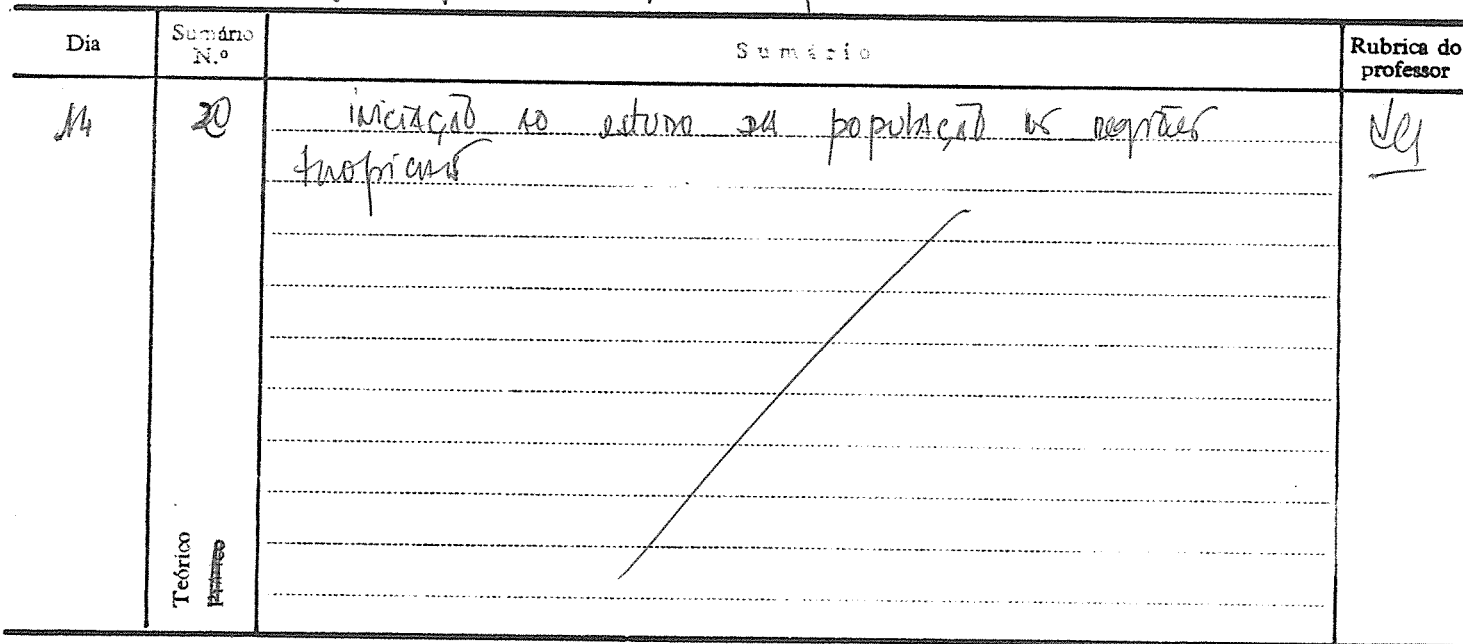 Dia
Sumário
N.º
Sumário
Rubrica do
professor
14
20
iniciação ao estudo da população nas regiões
tropicais
Teórico